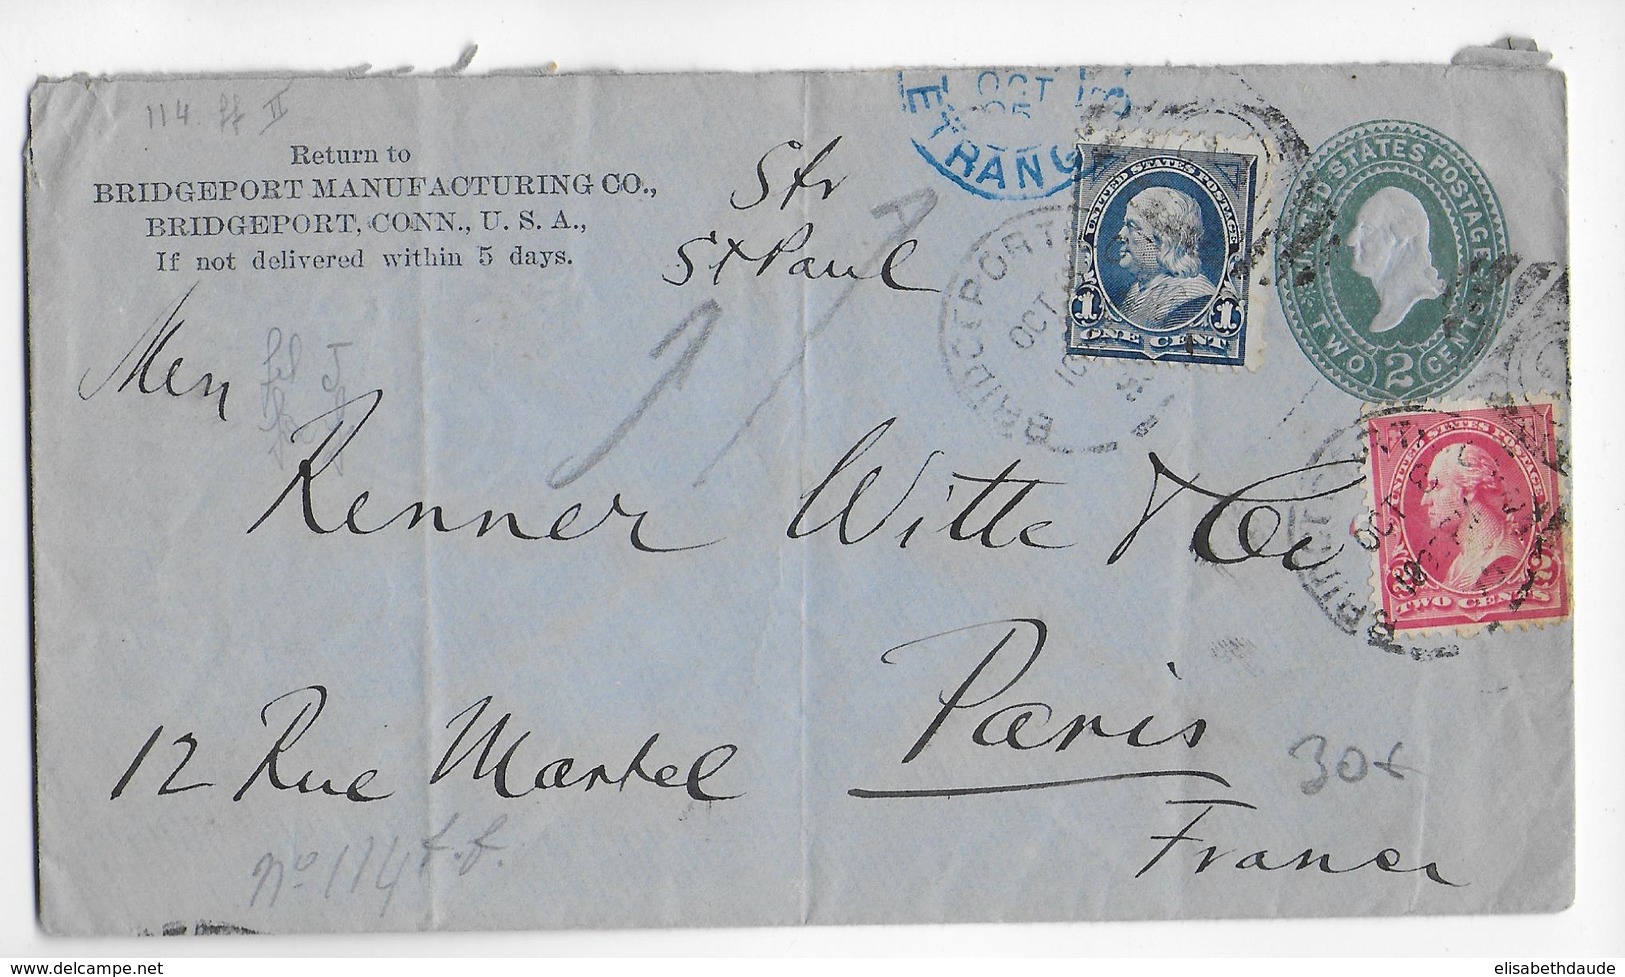 114. ff II
Return to
BRIDGEPORT MANUFACTURING CO.,
BRIDGEPORT, CONN., U. S. A.,
If not delivered within 5 days.
Str
St Paul
OCT
95
ETRANG
BRIDGEPORT
OCT
UNITED STATES POSTAGE
1 ONE CENT 1
UNITED STATES POSTAGE
TWO 2 CENTS
UNITED STATES POSTAGE
2 TWO CENTS 2
OCT
Renner Witte & Co
12 Rue Martel
Paris
France
No 114 f.f.
delcampe.net
elisabethdaude